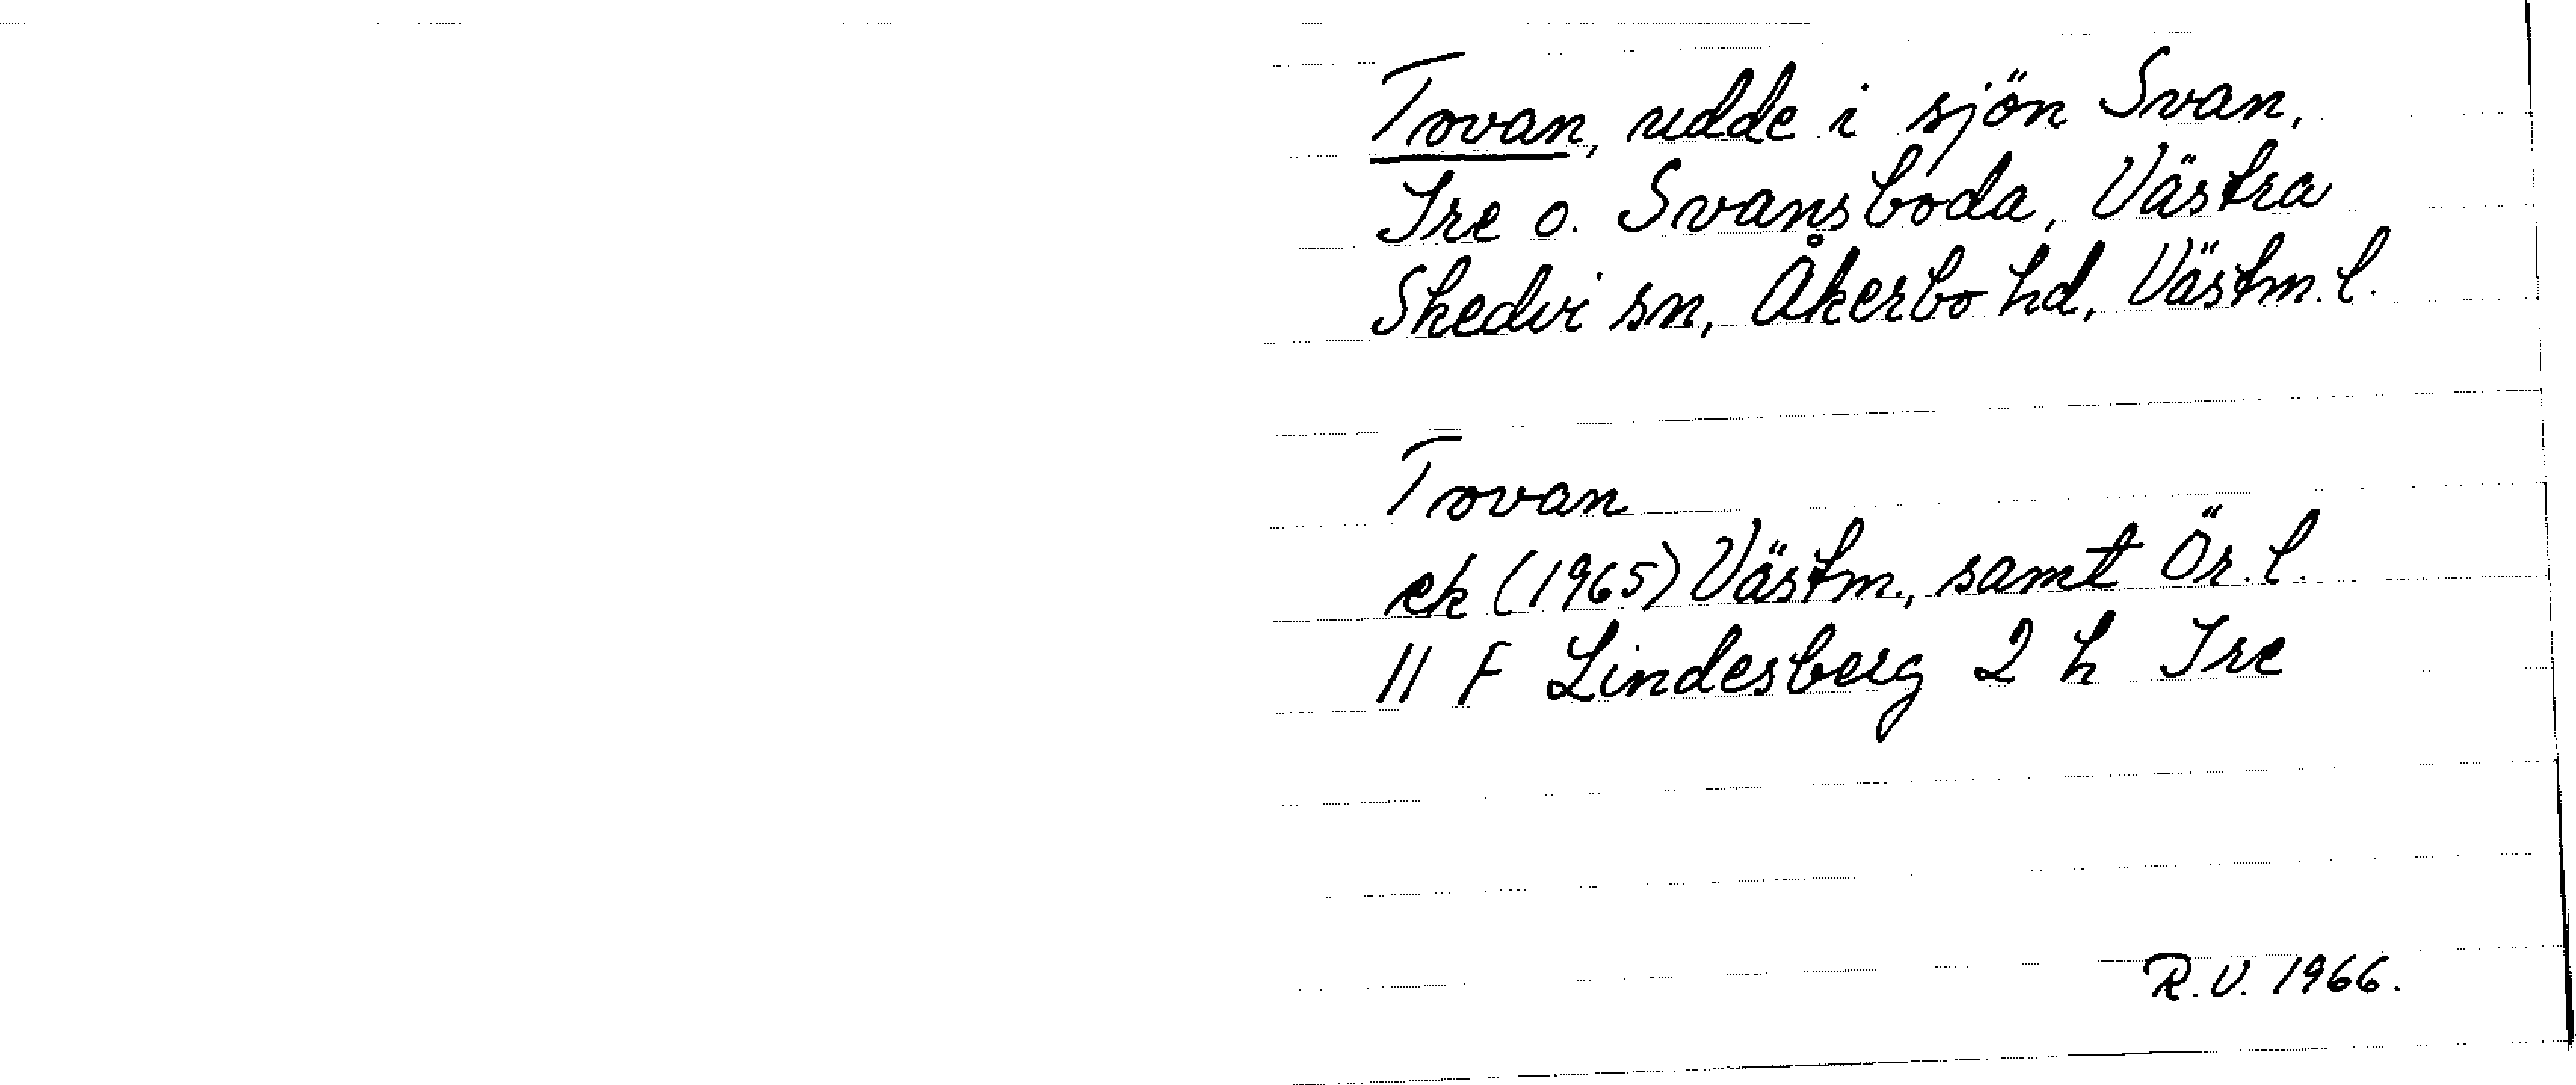 Trovan, udde i sjön Svan,
Tre o. Svansboda, Västra
Skedvi sn, Åkerbo hd, Västm. l.
Trovan
ek (1965) Västm., samt Ör. l.
11 F Lindesberg 2 h Tre
R.V. 1966.